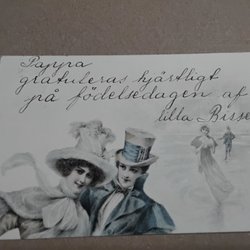 Pappa
gratuleras hjärtligt
på födelsedagen af
lilla Bisse